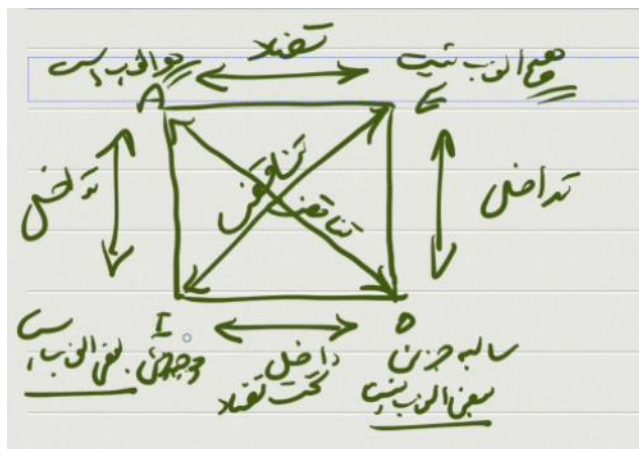 تضاد
هر الف ب است
هیچ الف ب نیست
A
E
تداخل
تناقض
تناقض
تداخل
I
O
موجبه جزئی
بعضی الف ب است
داخل
تحت تضاد
سالبه جزئی
بعضی الف ب نیست